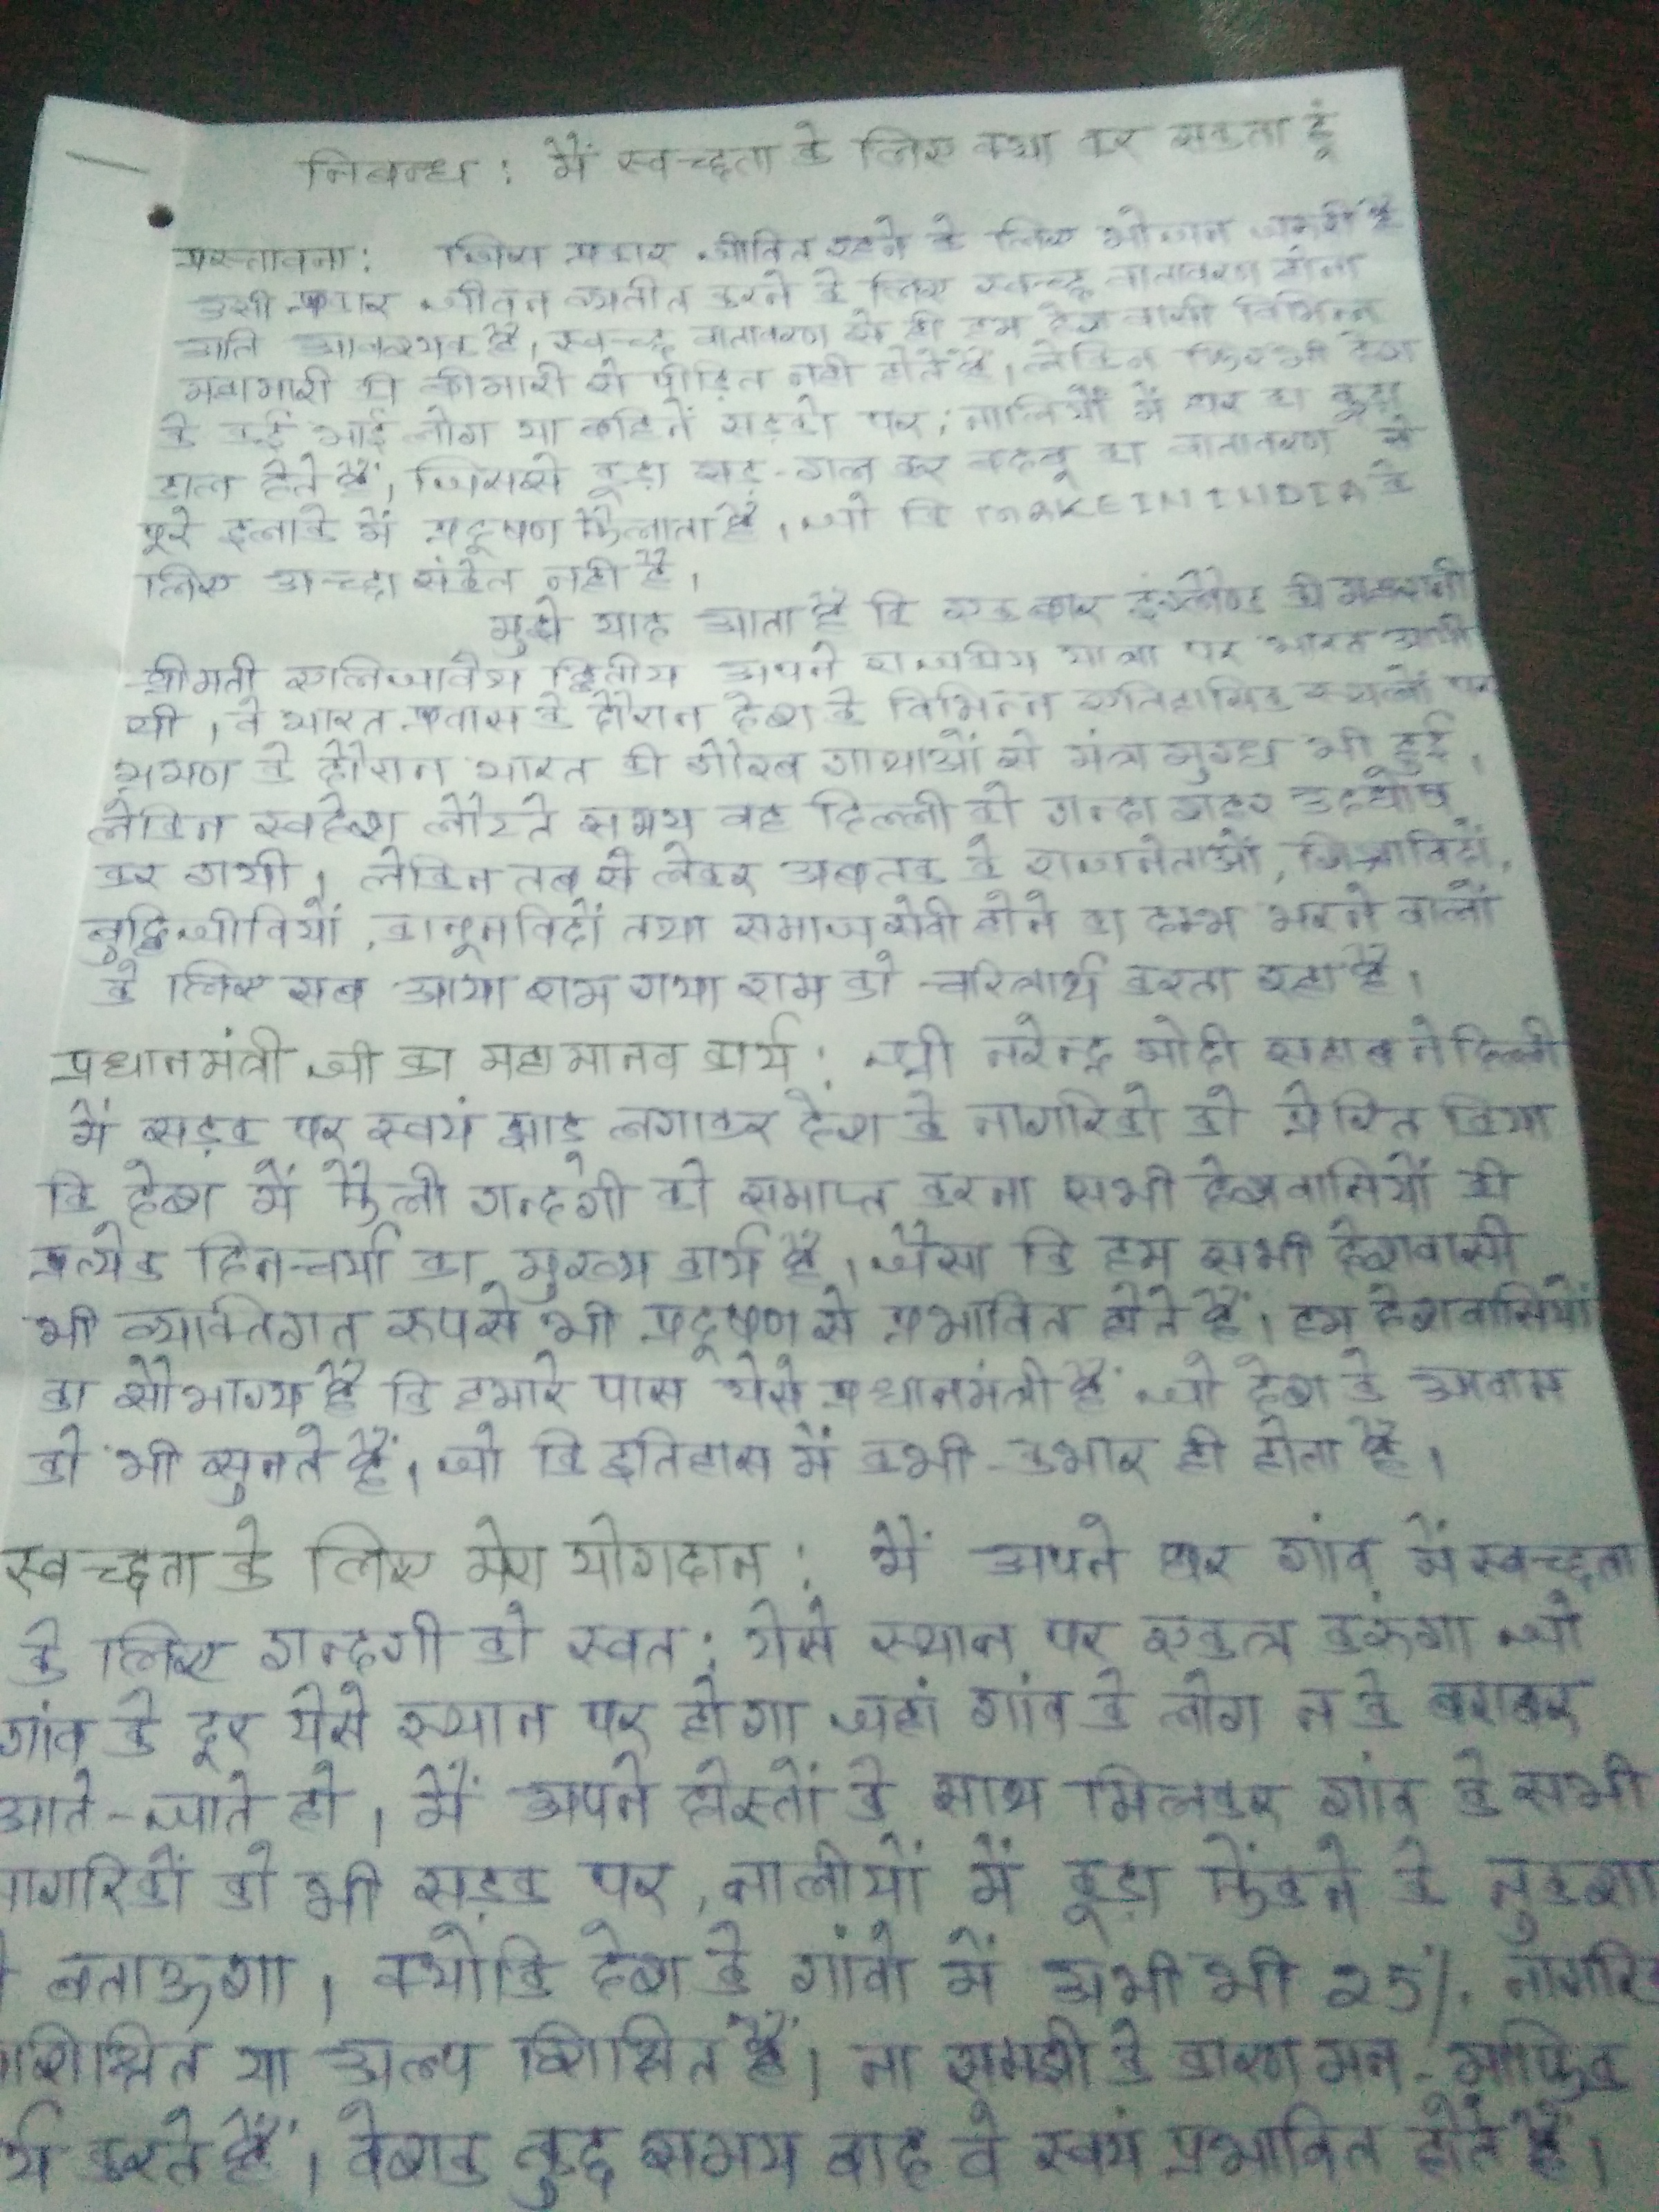 निबन्ध : मैं स्वच्छता के लिए क्या कर सकता हूं
प्रस्तावना : जिस प्रकार जीवित रहने के लिए भोजन जरूरी है
उसी प्रकार जीवन व्यतीत करने के लिए स्वच्छ वातावरण होना
अति आवश्यक है, स्वच्छ वातावरण से ही हम देशवासी विभिन्न
महामारी की बीमारी से पीड़ित नही होते हैं, लेकिन फिर भी देश
के कई भाई लोग या बहिनें सड़को पर, नालियों में घर का कूड़ा
डाल देते हैं, जिससे कूड़ा सड़-गल कर बदबू का वातावरण से
पूरे इलाके में प्रदूषण फैलाता है, जो कि MAKE IN INDIA के
लिए अच्छा संकेत नही है।
मुझे याद आता है कि एक बार इंग्लैण्ड की महारानी
श्रीमती एलिजावैथ द्वितीय अपने राजकीय यात्रा पर भारत आयी
थी, वे भारत प्रवास के दौरान देश के विभिन्न एतिहासिक स्थलों पर
भ्रमण के दौरान भारत की गौरव गाथाओं से मंत्र मुग्ध भी हुई,
लेकिन स्वदेश लौटते समय वह दिल्ली को गन्दा शहर उदघोष
कर गयी, लेकिन तब से लेकर अबतक के राजनेताओं, शिक्षाविदों,
बुद्धिजीवियों, कानूनविदों तथा समाज सेवी होने का दम्भ भरने वालों
के लिए सब आया राम गया राम को चरितार्थ करता रहा है।
प्रधानमंत्री जी का महा मानव कार्य : श्री नरेन्द्र मोदी सहाब ने दिल्ली
में सड़क पर स्वयं झाड़ू लगाकर देश के नागरिको को प्रेरित किया
कि देश में फैली गन्दगी को समाप्त करना सभी देशवासियों की
प्रत्येक दिन-चर्या का मुख्य कार्य है, जैसा कि हम सभी देशवासी
भी व्यक्तिगत रूप से भी प्रदूषण से प्रभावित होते हैं, हम देशवासियों
का सौभाग्य है कि हमारे पास येसे प्रधानमंत्री हैं जो देश के अवाम
को भी सुनते हैं, जो कि इतिहास में कभी-कभार ही होता है।
स्वच्छता के लिए मेरा योगदान : मैं अपने घर गांव में स्वच्छता
के लिए गन्दगी को स्वत: येसे स्थान पर एकत्र करूंगा जो
गांव के दूर येसे स्थान पर होगा जहां गांव के लोग न के बराबर
आते-जाते हो, मैं अपने दोस्तों के साथ मिलकर गांव के सभी
नागरिकों को भी सड़क पर, नालीयों में कूड़ा फेंकने के नुकशा
बताऊगा, क्योकि देश के गांवो में अभी भी 25%. नागरिक
शिक्षित या अल्प शिक्षित हैं, ना समझी के कारण मन-माफिक
र्य करते हैं, वेशक कुछ समय बाद वे स्वयं प्रभावित होते हैं।